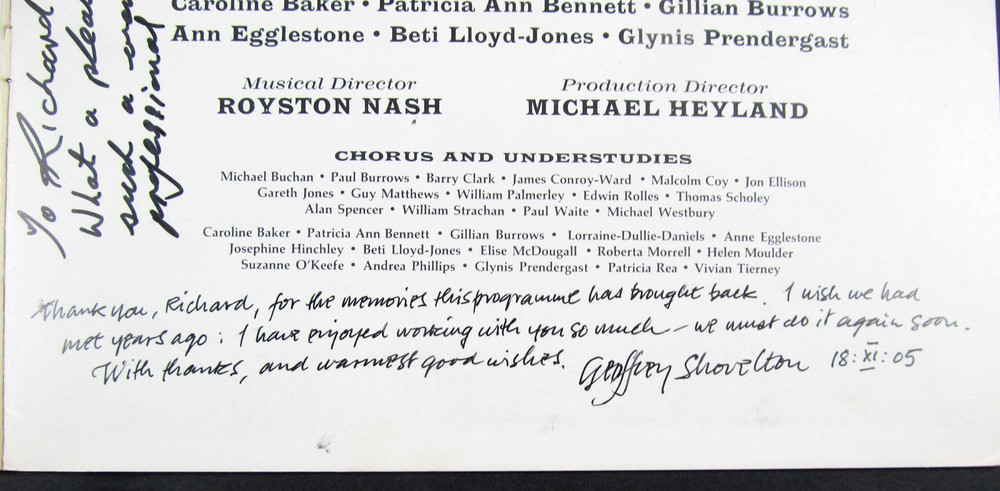 Caroline Baker • Patricia Ann Bennett • Gillian Burrows
Ann Egglestone • Beti Lloyd-Jones • Glynis Prendergast
Musical Director
ROYSTON NASH
Production Director
MICHAEL HEYLAND
CHORUS AND UNDERSTUDIES
Michael Buchan • Paul Burrows • Barry Clark • James Conroy-Ward • Malcolm Coy • Jon Ellison
Gareth Jones • Guy Matthews • William Palmerley • Edwin Rolles • Thomas Scholey
Alan Spencer • William Strachan • Paul Waite • Michael Westbury
Caroline Baker • Patricia Ann Bennett • Gillian Burrows • Lorraine-Dullie-Daniels • Anne Egglestone
Josephine Hinchley • Beti Lloyd-Jones • Elise McDougall • Roberta Morrell • Helen Moulder
Suzanne O'Keefe • Andrea Phillips • Glynis Prendergast • Patricia Rea • Vivian Tierney
Thank you, Richard, for the memories this programme has brought back. I wish we had
met years ago: I have enjoyed working with you so much – we must do it again soon.
With thanks, and warmest good wishes. Geoffrey Shovelton 18:XI:05
To Richard
What a
such a
professional